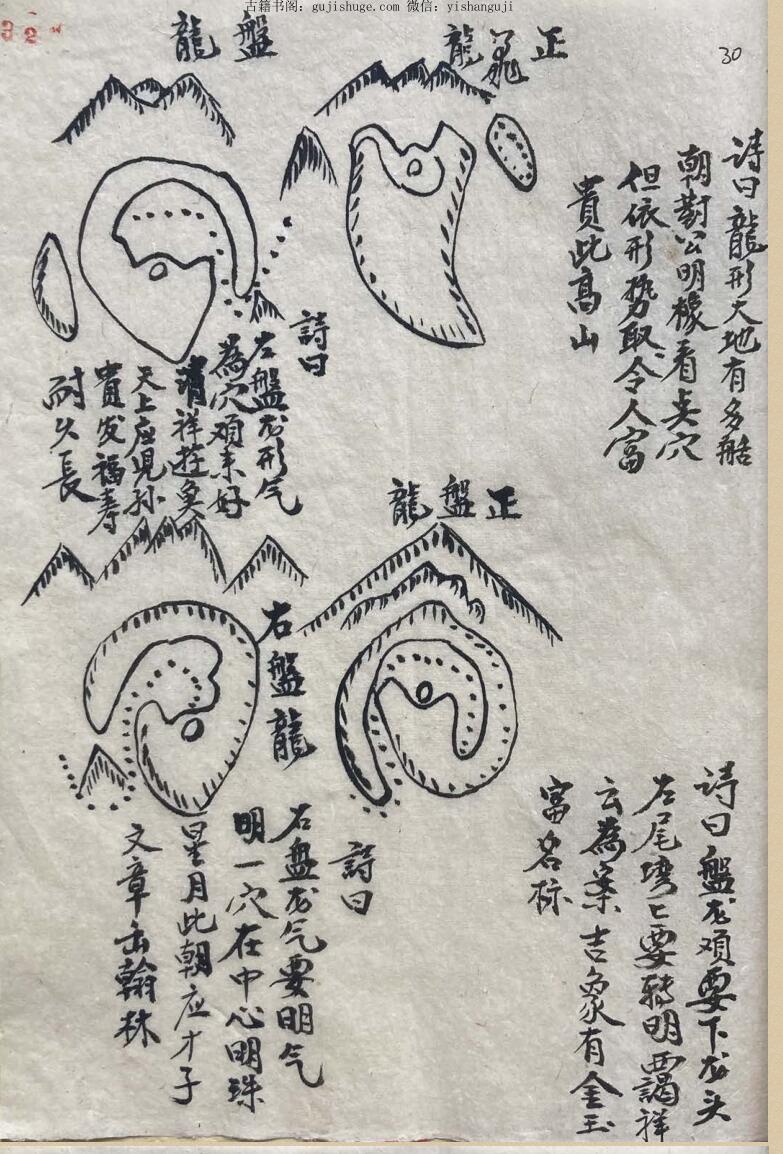 古籍书阁：gujishuge.com 微信：yishanguji
30
正 龍
詩曰龍形大地有多般
朝對公明樣看点穴
但依形势取令人富
貴此高山
盤龍
詩曰
左盤龙形气
為穴须来好
祥
天上应児孙
貴发福寿
耐久長
正盤龍
詩曰盤龙须要下龙头
左尾湾〻要轉明
云為案吉象有金玉
富名标
右盤龍
詩曰
右盤龙气要明气
明一穴在中心明珠
星月此朝应才子
文章出翰林